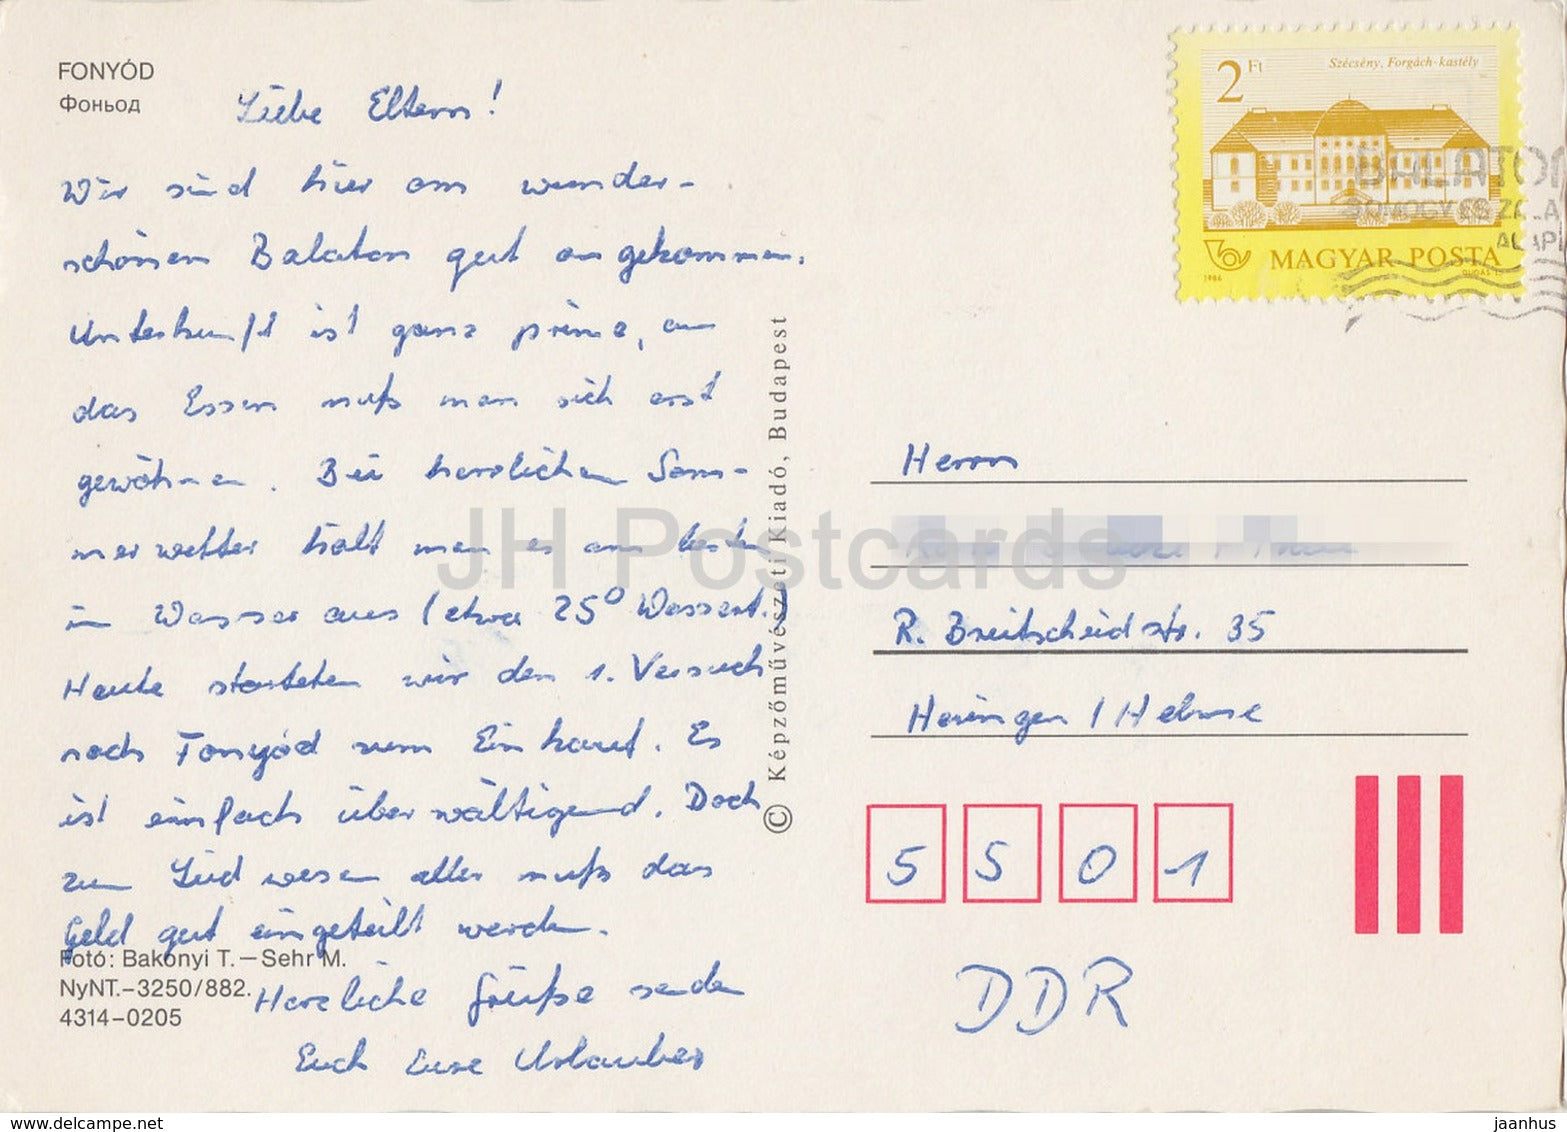 FONYÓD
Фоньод
Liebe Eltern!
Wir sind hier am wunder-
schönen Balaton gut angekommen.
Unterkunft ist ganz prima, an
das Essen muß man sich erst
gewöhnen. Bei herrlichem Som-
merwetter hält man es am besten
im Wasser aus (etwa 25° Wassert.)
Heute starteten wir den 1. Versuch
nach Fonyód zum Einkauf. Es
ist einfach überwältigend. Doch
zum Leidwesen aller muß das
Geld gut eingeteilt werden.
Herzliche Grüße senden
Euch Eure Urlauber
Fotó: Bakonyi T.—Sehr M.
NyNT.—3250/882.
4314-0205
© Képzőművészeti Kiadó, Budapest
2 Ft
Szécsény, Forgách-kastély
MAGYAR POSTA
1986
DUDÁS L.
BALATON
SOMOGY ÉS ZALA
ALAPJ
Herrn
R. Breitscheidstr. 35
Heringen / Helme
5 5 0 1
DDR
JH Postcards
www.delcampe.net
jaanhus